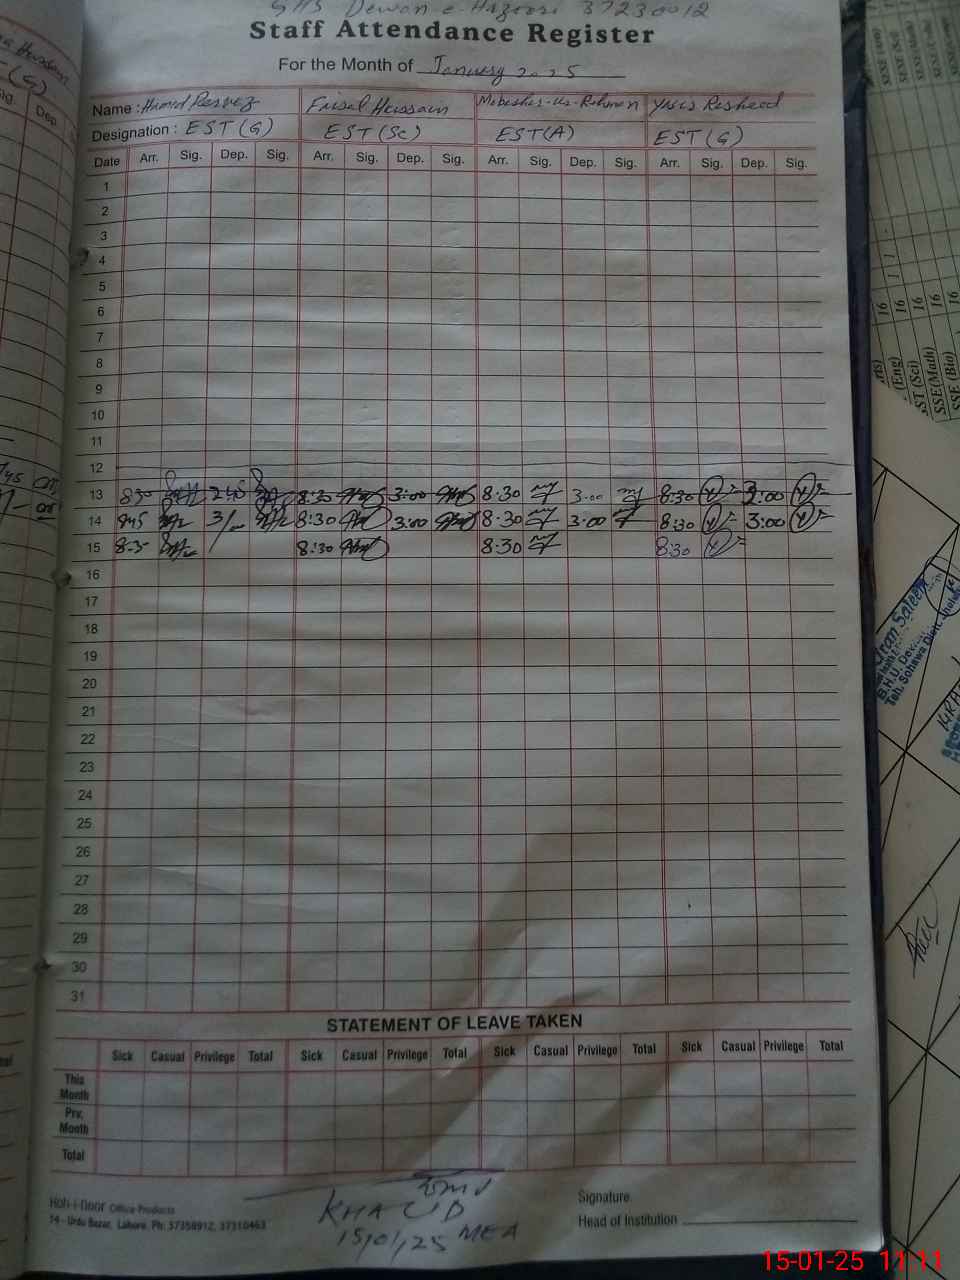 GHS Dewan e Hazoori 37230012
Staff Attendance Register
For the Month of January 2025
Name : Hamid Pervez Faisal Hussain Mobusher-Ur-Rehman Ynis Rasheed
Designation : EST (G) EST (Sc) EST (A) EST (G)
Date Arr. Sig. Dep. Sig. Arr. Sig. Dep. Sig. Arr. Sig. Dep. Sig. Arr. Sig. Dep. Sig.
1
2
3
4
5
6
7
8
9
10
11
12
13 830 245 8:30 3:00 8.30 3.00 8:30 3:00
14 845 3/ 8:30 3:00 8.30 3.00 8:30 3:00
15 8-3- 8:30 8:30 8:30
16
17
18
19
20
21
22
23
24
25
26
27
28
29
30
31
STATEMENT OF LEAVE TAKEN
Sick Casual Privilege Total Sick Casual Privilege Total Sick Casual Privilege Total Sick Casual Privilege Total
This Month
Prv. Month
Total
Koh-i-noor Office Products
14 - Urdu Bazar, Lahore. Ph: 37358912, 37310463
KHALID
15/01/25 MEA
Signature
Head of Institution
SSE (Math) 16
SSE (Bio) 16
B.H.U. Dewan
Teh. Sohawa Distt. Jhelum
15-01-25 11:11